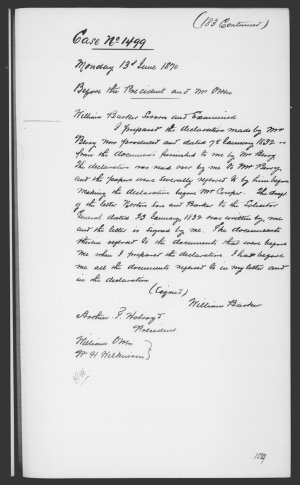 (183 Continued)
Case No 1499
Monday 13th June 1890
Before the President and Mr Owen
William Barker Sworn and Examined
I prepared the declaration made by Mr
Berry now produced and dated 7th January 1882
from the documents furnished to me by Mr Berry
The declaration was read over by me to Mr Berry
and the papers were severally referred to by him before
making the declaration before Mr Cooper. The draft
of the letter Norton Son and Barker to the Solicitor
General dated 23 January 1882 was written by me
and the letter is signed by me. The documents
therein referred to the documents that were before
me when I prepared the declaration I had before
me all the documents referred to in my letter and
in the declaration
(Signed)
William Barker
Arthur
President
William Owen
W H Wilkinson
189